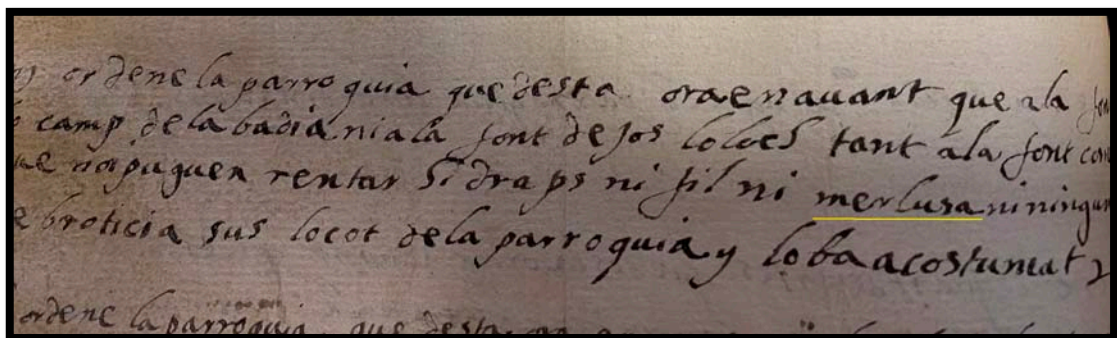 ordene la parroquia que desta ora enauant que ala
camp dela badia ni ala font de jos loloes tant ala font
no puguen rentar si draps ni fil ni merlusa ni ningun
broticia sus locot dela parroquia y loba acostumat y
ordene la parroquia que desta